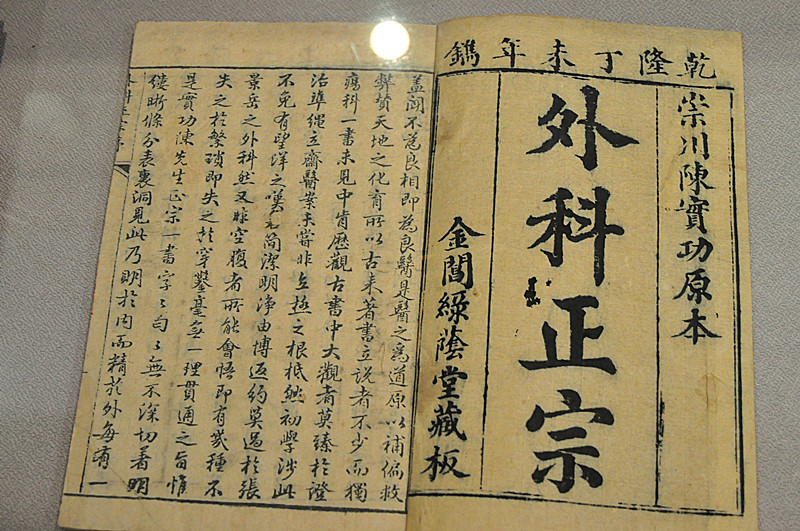 乾隆丁未年鐫
崇川陳實功原本
外科正宗
金閶綠蔭堂藏板
蓋聞不為良相即為良醫是醫之為道原以補偏救
弊贊天地之化育所以古來著書立說者不少而獨
瘍科一書未見中肯歷觀古書中大觀者莫臻於證
治準繩立齋醫案未嘗非立極之根柢然初學涉此
不免有望洋之嘆尤簡潔明淨由博返約莫過於張
景岳之外科然又腹空腹者所能會悟即有幾種不
失之於繁瑣即失之於穿鑿毫無一理貫通之旨惟
是實功陳先生正宗一書字〻句〻無不深切著明
縷晰條分表裏洞見此乃明於內而精於外每有一